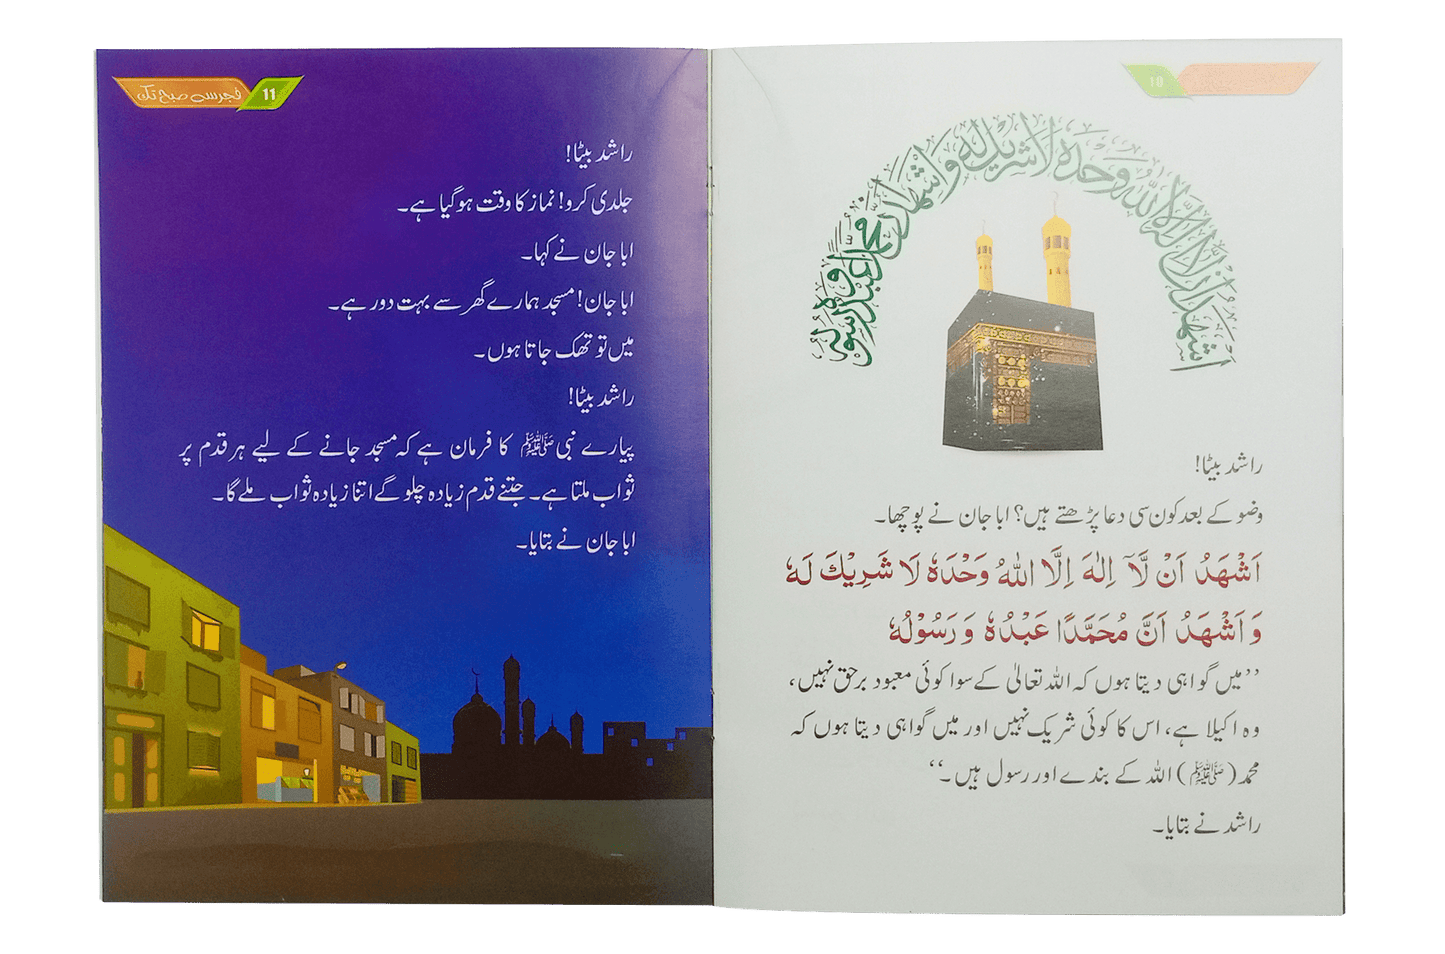 10
اشهد ان لا اله الا الله وحده لا شريك له واشهد ان محمدا عبده ورسوله
راشد بیٹا!
وضو کے بعد کون سی دعا پڑھتے ہیں؟ ابا جان نے پوچھا۔
اَشْهَدُ اَنْ لَّآ اِلٰهَ اِلَّا اللّٰهُ وَحْدَهٗ لَا شَرِيْكَ لَهٗ
وَ اَشْهَدُ اَنَّ مُحَمَّدًا عَبْدُهٗ وَ رَسُوْلُهٗ
’’میں گواہی دیتا ہوں کہ اللہ تعالیٰ کے سوا کوئی معبود برحق نہیں،
وہ اکیلا ہے، اس کا کوئی شریک نہیں اور میں گواہی دیتا ہوں کہ
محمد (ﷺ) اللہ کے بندے اور رسول ہیں۔‘‘
راشد نے بتایا۔
فجر سے صبح تک
11
راشد بیٹا!
جلدی کرو! نماز کا وقت ہو گیا ہے۔
ابا جان نے کہا۔
ابا جان! مسجد ہمارے گھر سے بہت دور ہے۔
میں تو تھک جاتا ہوں۔
راشد بیٹا!
پیارے نبی ﷺ کا فرمان ہے کہ مسجد جانے کے لیے ہر قدم پر
ثواب ملتا ہے۔ جتنے قدم زیادہ چلو گے اتنا زیادہ ثواب ملے گا۔
ابا جان نے بتایا۔